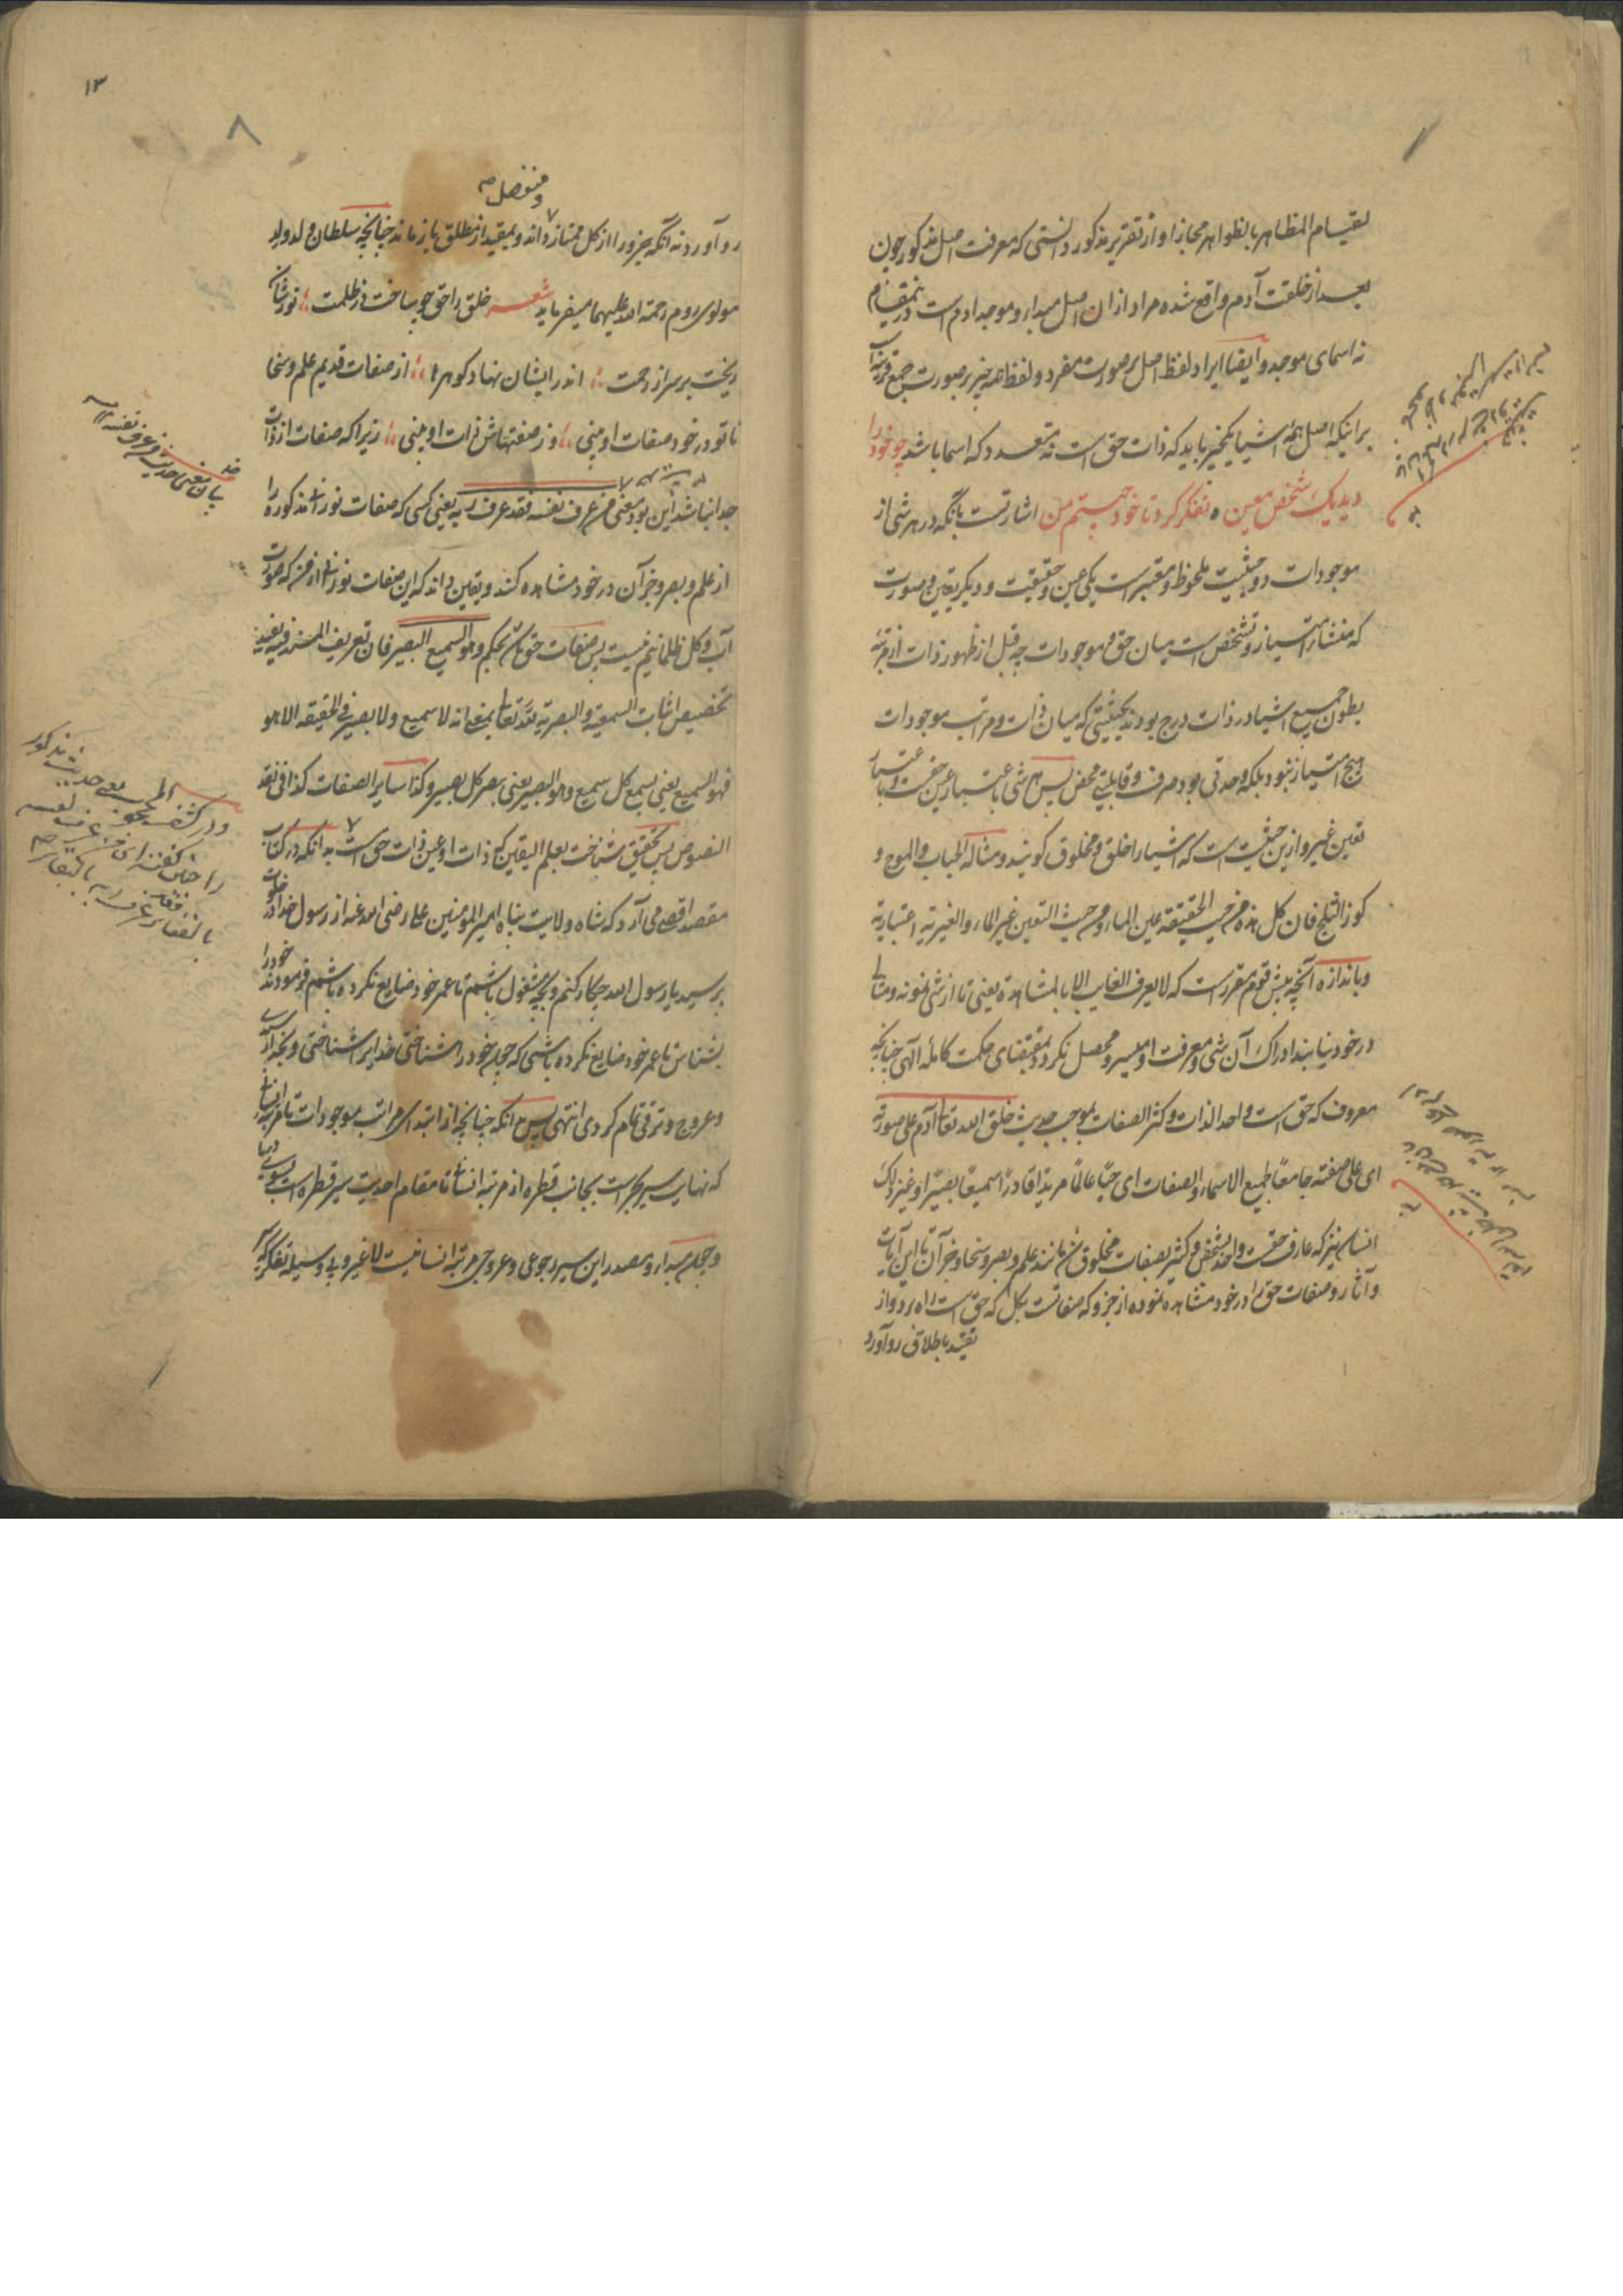 لقیام المظاهر بالظواهر مجازا و از تقریر مذکور دانستی که معرفت اصل مذکور چون
بعد از خلقت آدم واقع شده مراد از ان اصل مبداء و موجد ادم است درینمقام
نه اسمای موجد و ایضا ایراد لفظ اصل بر صورت مفرد و لفظ همه چیز بر صورت جمع قرینه
برانیکه اصل همه اشیا یکچیز باید که ذات حق است نه متعدد که اسما باشد چو خود را
دید یک شخص معین ه تفکر کرد تا خود چیستم من اشارتست بانکه در هر شی از
موجودات دو حیثیت ملحوظ و معتبر است یکی عین و حقیقت و دیگر تعین و صورت
که منشاء امتیاز و تشخص است میان حق و موجودات چه قبل از ظهور ذات از مرتبه
بطون جمیع اشیا در ذات درج بودند بحیثیتی که میان ذات و مراتب موجودات
هیچ امتیاز نبود بلکه وحدتی بود صرف و قابلیتی محض پس هر شی باعتبار عین حقست و باعتبار
تعین غیر و ازین حیثیت است که اشیا را خلق و مخلوق کویند و مثاله الحباب و الموج و
کوز الثلج فان کل هذه من حیث الحقیقة عین الماء و من حیث التعین غیر الماء و الغیریة اعتباریة
و باندازه آنچه پیش قوم مقرر است که لا یعرف الغایب الا بالمشاهدة یعنی تا از شی نمونه و مثالی
در خود نیابند ادراک آن شی و معرفت او میسر و محصل نکردد و بمقتضای حکمت کامله الهی چنانچه
معروف که حق است واحد الذات و کثیر الصفات بموجب حدیث خلق الله تعالی آدم علی صورته
ای علی صفته جامعا لجمیع الاسماء و الصفات ای حیا عالما مریدا قادرا سمیعا بصیرا و غیر ذلک
انسان نیز که عارف حقست واحد بشخص و کثیر بصفات مخلوق شد مانند علم و بصر و سخا و جز آن تا این آیات
و آثار و صفات حق را در خود مشاهده نموده از جزو که صفاتست بکل که حق است راه برد و از
تقید باطلاق رو آورد
۱۳
۸
و منفصل صح
رو آورد نه آنکه جزو را از کل ممتاز داند و بمقید از مطلق باز ماند چنانچه سلطان ولد و لد
مولوی روم رحمة الله علیهما میفرماید شعر خلق را حق چو ساخت در ظلمت نورشان
ریخت بر سر از رحمت اندر ایشان نهاد کوهرها از صفات قدیم علم و سخا
تا تو در خود صفات او بینی وز صفتهاش ذات او بینی زیرا که صفات از ذات
جدا نباشد این بود معنی من عرف نفسه فقد عرف ربه یعنی کسی که صفات نورانی مذکوره را
از علم و بصر و جز آن در خود مشاهده کند و یقین داند که این صفات نورانی از من که صورت
آب و کل ظلمانیم نیست پس صفات حق باشد بحکم و هو السمیع البصیر فان تعریف المسند فیه یفید
تخصیص اثبات السمعیة و البصریة لله تعالی بمعنی انه لا سمیع و لا بصیر فی الحقیقه الا هو
فهو السمیع یعنی بسمع کل سمیع و هو البصیر یعنی ببصر کل بصیر و کذا سایر الصفات کذا فی نقد
النصوص پس بتحقیق شناخت بعلم الیقین که ذات او عین ذات حق است بدانکه در کتاب
مقصد اقصی می آرد که شاه ولایت پناه امیر المومنین علی رضی الله عنه از رسول خدا در خلوت
پرسید یا رسول الله چکار کنم و بچه مشغول باشم تا عمر خود ضایع نکرده باشم فرمودند خود را
بشناس تا عمر خود ضایع نکرده باشی که چون خود را شناختی خدایرا شناختی و بخدا رسیدی
و عروج و ترقی تمام کردی انتهی پس بدانکه چنانچه از ابتدای مراتب موجودات تا مرتبه انسان
که نهایت سیر بحر است بجانب قطره از مرتبه انسان تا مقام احدیت سیر قطره است بسوی دریا
و چون مبداء و مصدر این سیر رجوعی و عروجی مرتبه انسانیت لا غیر و بی وسیله تفکر که
بیان معنی حدیث من عرف نفسه
و در کشف المحجوب معنی حدیث مذکور
را چنین کفته ای من عرف نفسه
بالفناء فقد عرف ربه بالبقاء صح